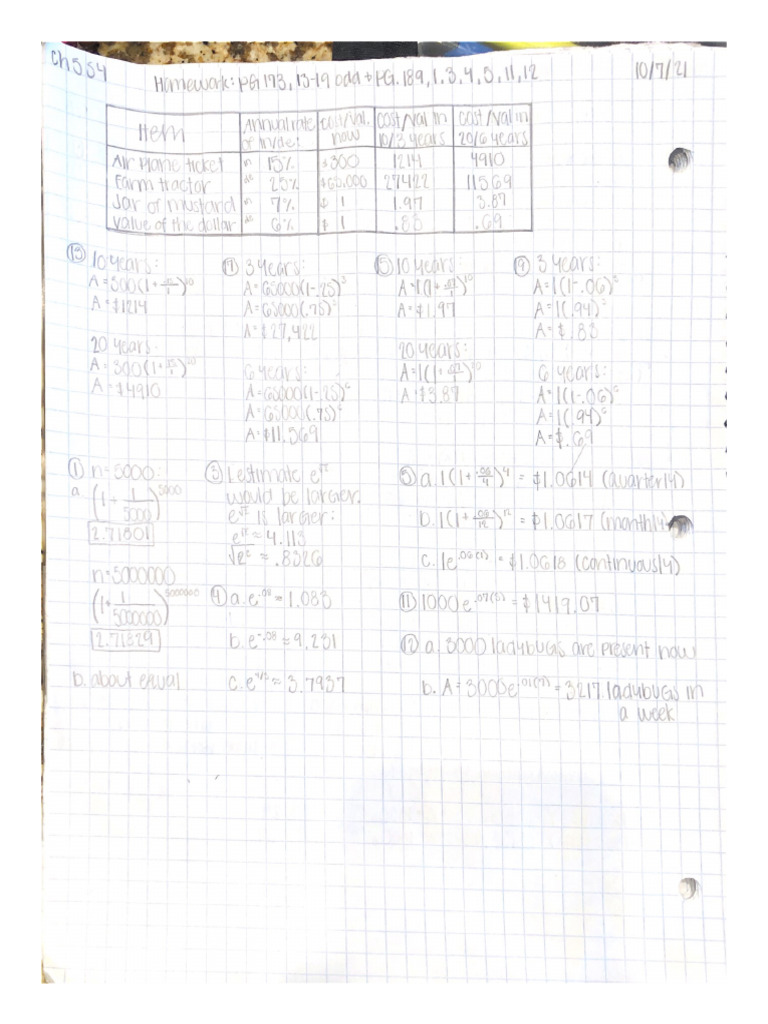 Ch 5 S4
Homework: PG. 173, 13-19 odd + PG. 189, 1, 3, 4, 5, 11, 12
10/7/21
Item
Annual rate of in/de:
cost/val. now
cost/val in 10/3 years
cost/val in 20/6 years
Air plane ticket in 15% $300 1214 4910
Farm tractor de 25% $65,000 27422 11569
Jar of mustard in 7% $1 1.97 3.87
value of the dollar de 6% $1 .83 .69
(13) 10 years:
A = 300(1 + .15/1)^10
A = $1214
20 years:
A = 300(1 + .15/1)^20
A = $4910
(17) 3 years:
A = 65000(1-.25)^3
A = 65000(.75)^3
A = $27,422
6 years:
A = 65000(1-.25)^6
A = 65000(.75)^6
A = $11,569
(15) 10 years:
A = 1(1 + .07/1)^10
A = $1.97
20 years:
A = 1(1 + .07/1)^20
A = $3.87
(9) 3 years:
A = 1(1-.06)^3
A = 1(.94)^3
A = $.83
6 years:
A = 1(1-.06)^6
A = 1(.94)^6
A = $.69
(1) n = 5000:
a. (1 + 1/5000)^5000
2.71801
n = 5000000
(1 + 1/5000000)^5000000
2.71829
b. about equal
(3) I estimate e^√2
would be larger.
e^√2 is larger:
e^√2 ≈ 4.113
(4) a. e^.08 ≈ 1.083
c. e^4/3 ≈ 3.7937
(5) a. 1(1 + .06/4)^4 = $1.0614 (quarterly)
b. 1(1 + .06/12)^12 = $1.0617 (monthly)
c. 1e^.06(1) = $1.0618 (continuously)
(11) 1000e^.07(5) = $1419.07
(12) a. 3000 ladybugs are present now
b. A = 3000e^.01(7) = 3217 ladybugs in
a week